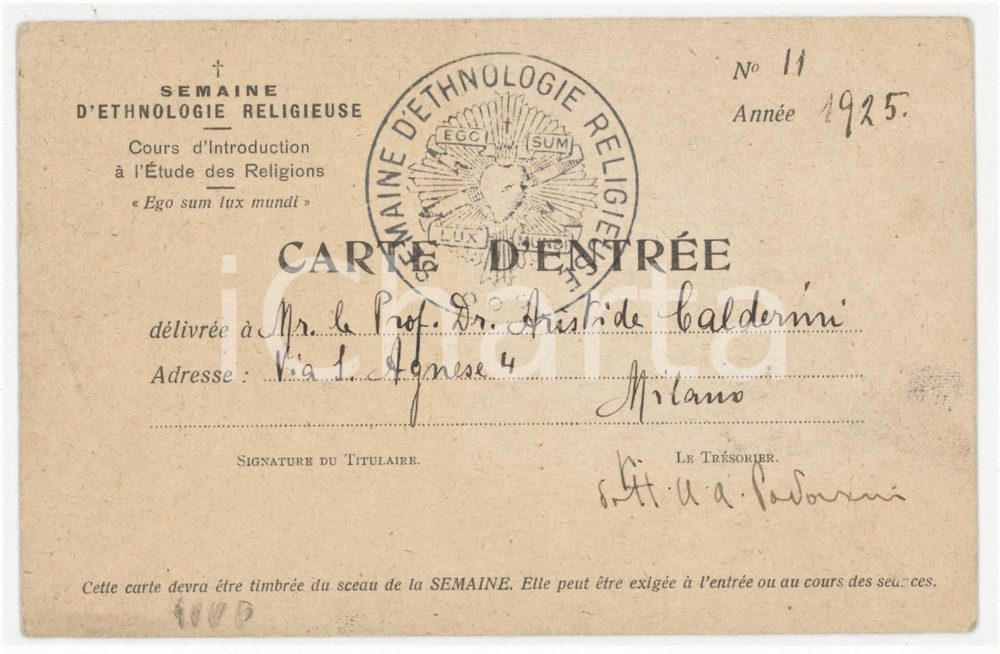 †
SEMAINE
D'ETHNOLOGIE RELIGIEUSE
Cours d'Introduction
à l'Étude des Religions
« Ego sum lux mundi »
SEMAINE D'ETHNOLOGIE RELIGIEUSE
EGO SUM
LUX MUNDI
No 11
Année 1925.
CARTE D'ENTRÉE
délivrée à Mr. le Prof. Dr. Aristide Calderini
Adresse : Via S. Agnese 4
Milano
SIGNATURE DU TITULAIRE.
LE TRÉSORIER.
U. A. Padovani
Cette carte devra être timbrée du sceau de la SEMAINE. Elle peut être exigée à l'entrée ou au cours des séances.
iCharta